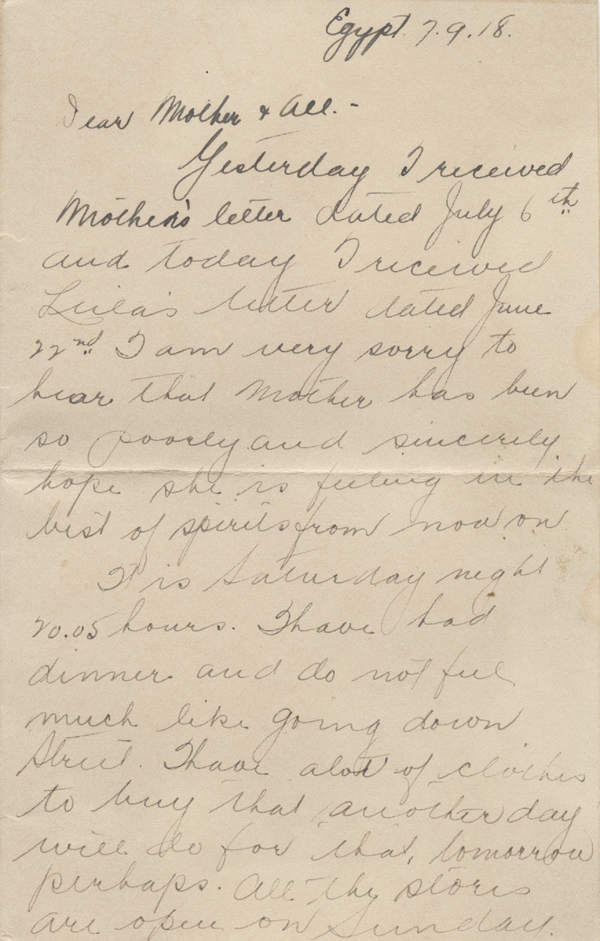 Egypt 7.9.18.
Dear Mother & All. -
Yesterday I received
Mother's letter dated July 6th
and today I received
Lula's letter dated June
22nd. I am very sorry to
hear that Mother has been
so poorly and sincerely
hope she is feeling in the
best of spirits from now on
It is Saturday night
20.05 hours. I have had
dinner and do not feel
much like going down
Street. I have alot of clothes
to buy that another day
will do for that, tomorrow
perhaps. All the stores
are open on Sunday.